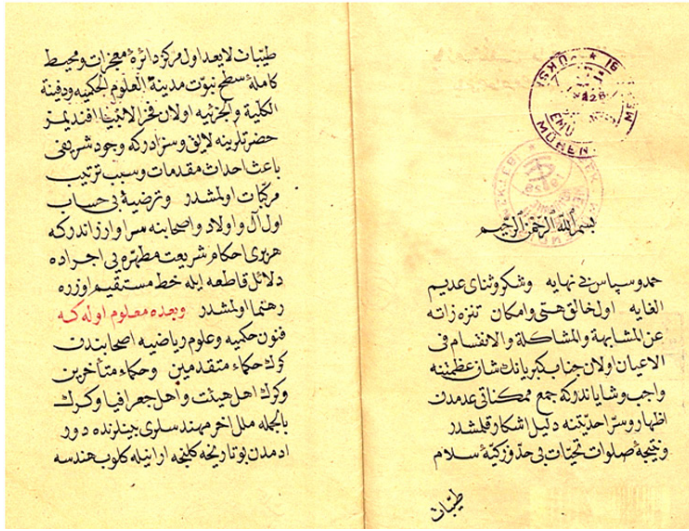 بسم الله الرحمن الرحيم
حمد و سپاس بى نهايه و شكر و ثناى عديم
الغايه اول خالق هستى و امكان تنزه ذاته
عن المشابهة والمشاكلة والانقسام فى
الاعيان اولان جناب كبريانك شان عظمتنه
واجب و شاياندركه جمع ممكناتى عدمدن
اظهار و سر احديتنه دليل اشكار قلمشدر
و نتيجهٔ صلوات تحيات بى حد و زكيهٔ سلام
طيبات
طيبات لايعد اول مركز دائرهٔ معجزات و محيط
كاملهٔ سطح نبوت مدينة العلوم الحكميه و دفينة
الكلية والجزئيه اولان فخر الانبيا افنديمز
حضرتلرينه لايق و سزادركه وجود شريفى
باعث احداث مقدمات و سبب ترتيب
مركبات اولمشدر و ترضيهٔ بى حساب
اول آل و اولاد و اصحابنه سزا و ارزاندركه
هر برى احكام شريعت مطهره يى اجراده
دلائل قاطعه ايله خط مستقيم اوزره
رهنما اولمشدر و بعده معلوم اوله كه
فنون حكميه و علوم رياضيه اصحابندن
كرك حكماء متقدمين و حكماء متأخرين
و كرك اهل هيئت و اهل جغرافيا و كرك
بالجمله ملل اخر مهندسلرى بينلرنده دور
ادمدن بو تاريخه كلنجه ارانيله كلوب هندسه
MÜNCHEN